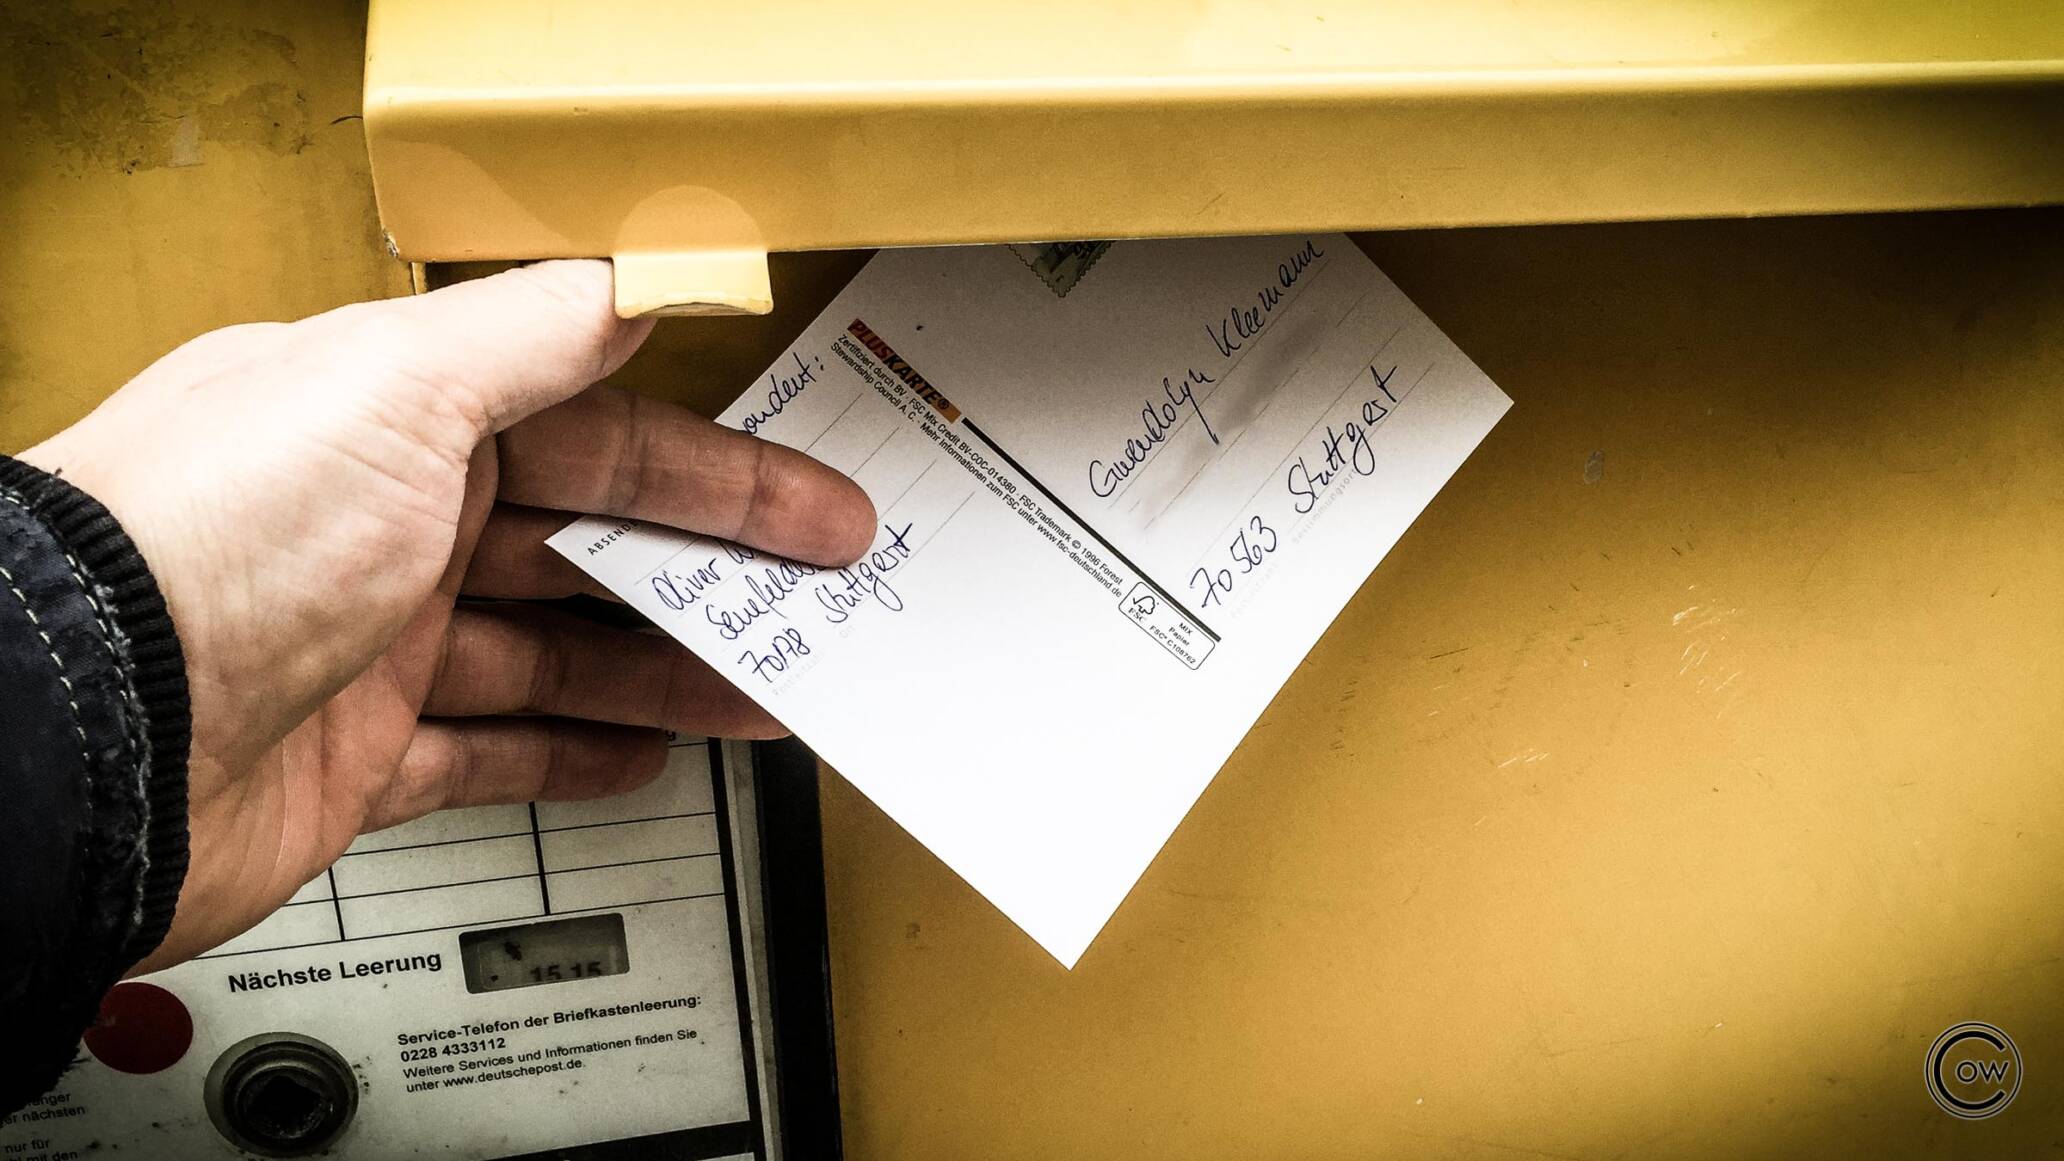 PLUSKARTE®
Zertifiziert durch BV · FSC Mix Credit BV-COC-014380 · FSC Trademark © 1996 Forest
Stewardship Council A. C. · Mehr Informationen zum FSC unter www.fsc-deutschland.de
FSC
MIX
Papier
FSC® C108762
Gwendolyn Kleemann
70563 Stuttgart
Bestimmungsort
Oliver
70178 Stuttgart
Ort
Postleitzahl
Nächste Leerung
15 15
Service-Telefon der Briefkastenleerung:
0228 4333112
Weitere Services und Informationen finden Sie
unter www.deutschepost.de.
er nächsten
nur für
mit den
COW